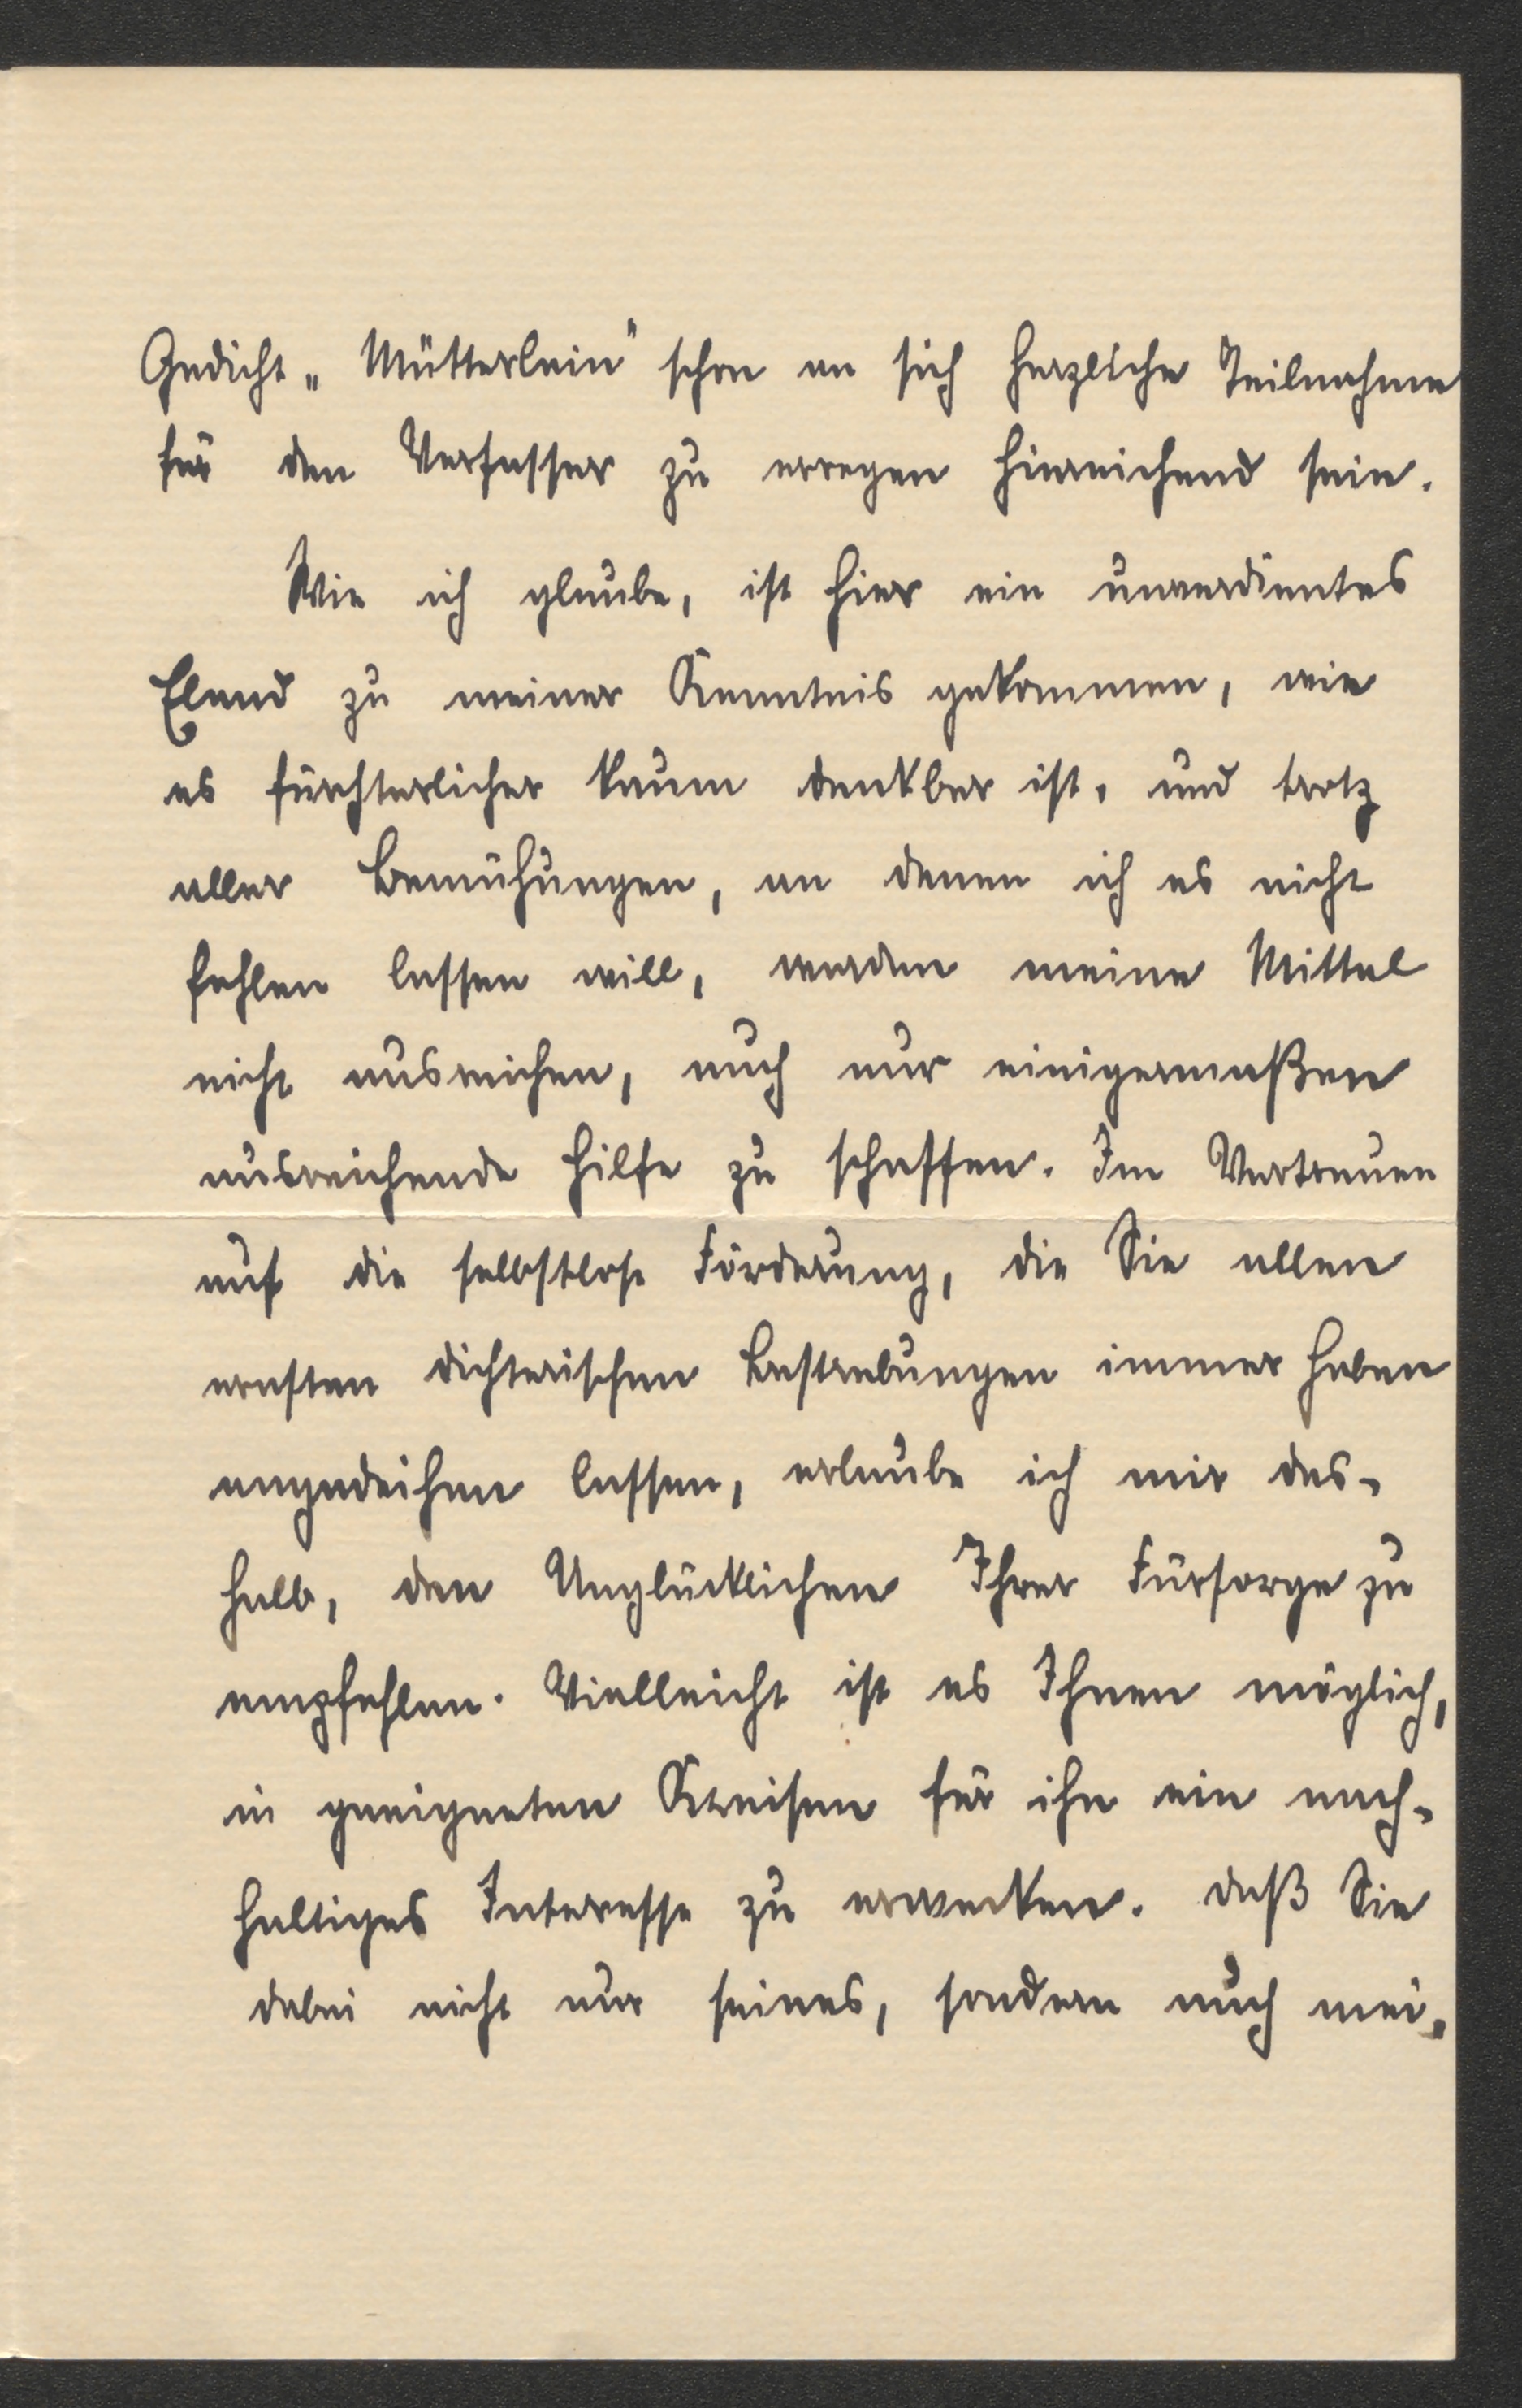 Gedicht „Mütterlein" schon an sich herzliche Teilnahme
für den Verfasser zu erregen hinreichend sein.
Wie ich glaube, ist hier ein unverdientes
Elend zu meiner Kenntnis gekommen, wie
es fürchterlicher kaum denkbar ist, und trotz
aller Bemühungen, an denen ich es nicht
fehlen lassen will, werden meine Mittel
nicht ausreichen, auch nur einigermaßen
ausreichende Hilfe zu schaffen. Im Vertrauen
auf die selbstlose Förderung, die Sie allen
ernsten dichterischen Bestrebungen immer haben
angedeihen lassen, erlaube ich mir des-
halb, den Unglücklichen Ihrer Fürsorge zu
empfehlen. Vielleicht ist es Ihnen möglich,
in geeigneten Kreisen für ihn ein nach-
haltiges Interesse zu erwecken. daß Sie
dabei nicht nur seines, sondern auch mei-